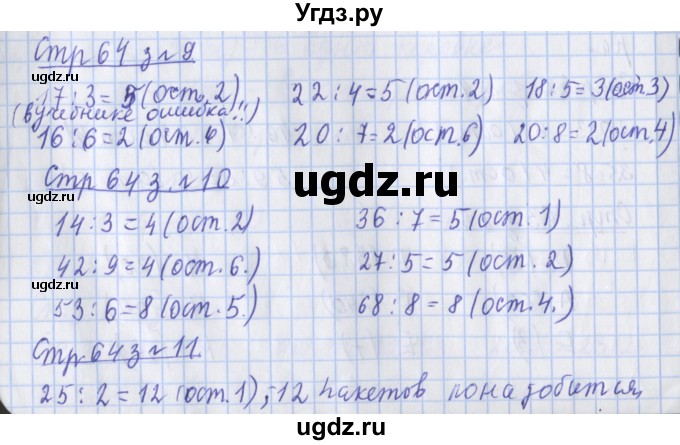 Угдз.ру
Стр 64 з.№9
17 : 3 = 5 (ост. 2) 22 : 4 = 5 (ост. 2) 18 : 5 = 3 (ост. 3)
(в учебнике ошибка!!)
16 : 6 = 2 (ост. 4) 20 : 7 = 2 (ост. 6) 20 : 8 = 2 (ост. 4)
Стр 64 з.№10
14 : 3 = 4 (ост. 2) 36 : 7 = 5 (ост. 1)
42 : 9 = 4 (ост. 6.) 27 : 5 = 5 (ост. 2)
53 : 6 = 8 (ост. 5.) 68 : 8 = 8 (ост. 4.)
Стр 64 з №11
25 : 2 = 12 (ост. 1), - 12 пакетов понадобится
ugdz.ru
ugdz.ru
ugdz.ru
ugdz.ru
ugdz.ru
ugdz.ru
ugdz.ru
ugdz.ru
ugdz.ru